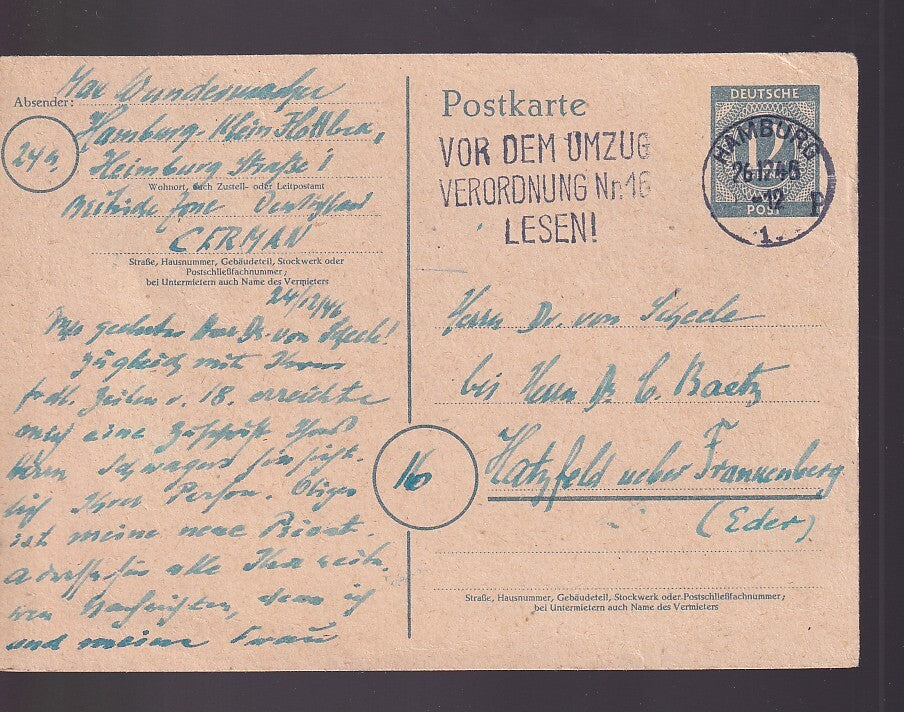 Absender: Max Wundermacher
Hamburg- Klein Flottbek,
24a
Heimburg Straße 1
Wohnort, auch Zustell- oder Leitpostamt
Britische Zone Deutschland
GERMAN
Straße, Hausnummer, Gebäudeteil, Stockwerk oder
Postschließfachnummer;
bei Untermietern auch Name des Vermieters
24/12/46
geehrter Herr Dr. von Scheele!
Zugleich mit Ihren
frdl. Zeilen v. 18. erreichte
mich eine Zuschrift Ihres
Herrn Schwagers hinsicht-
lich Ihrer Person. Obiges
ist meine neue Privat-
adresse für alle Ihre weite-
ren Nachrichten, denn ich
und meine Frau
Postkarte
VOR DEM UMZUG
VERORDNUNG Nr. 16
LESEN!
DEUTSCHE
12
POST
HAMBURG
26.12.46
-12
P
1
Herrn Dr. von Scheele
bei Herrn Dr. C. Baetz
16
Hatzfeld ueber Frankenberg
(Eder)
Straße, Hausnummer, Gebäudeteil, Stockwerk oder Postschließfachnummer;
bei Untermietern auch Name des Vermieters